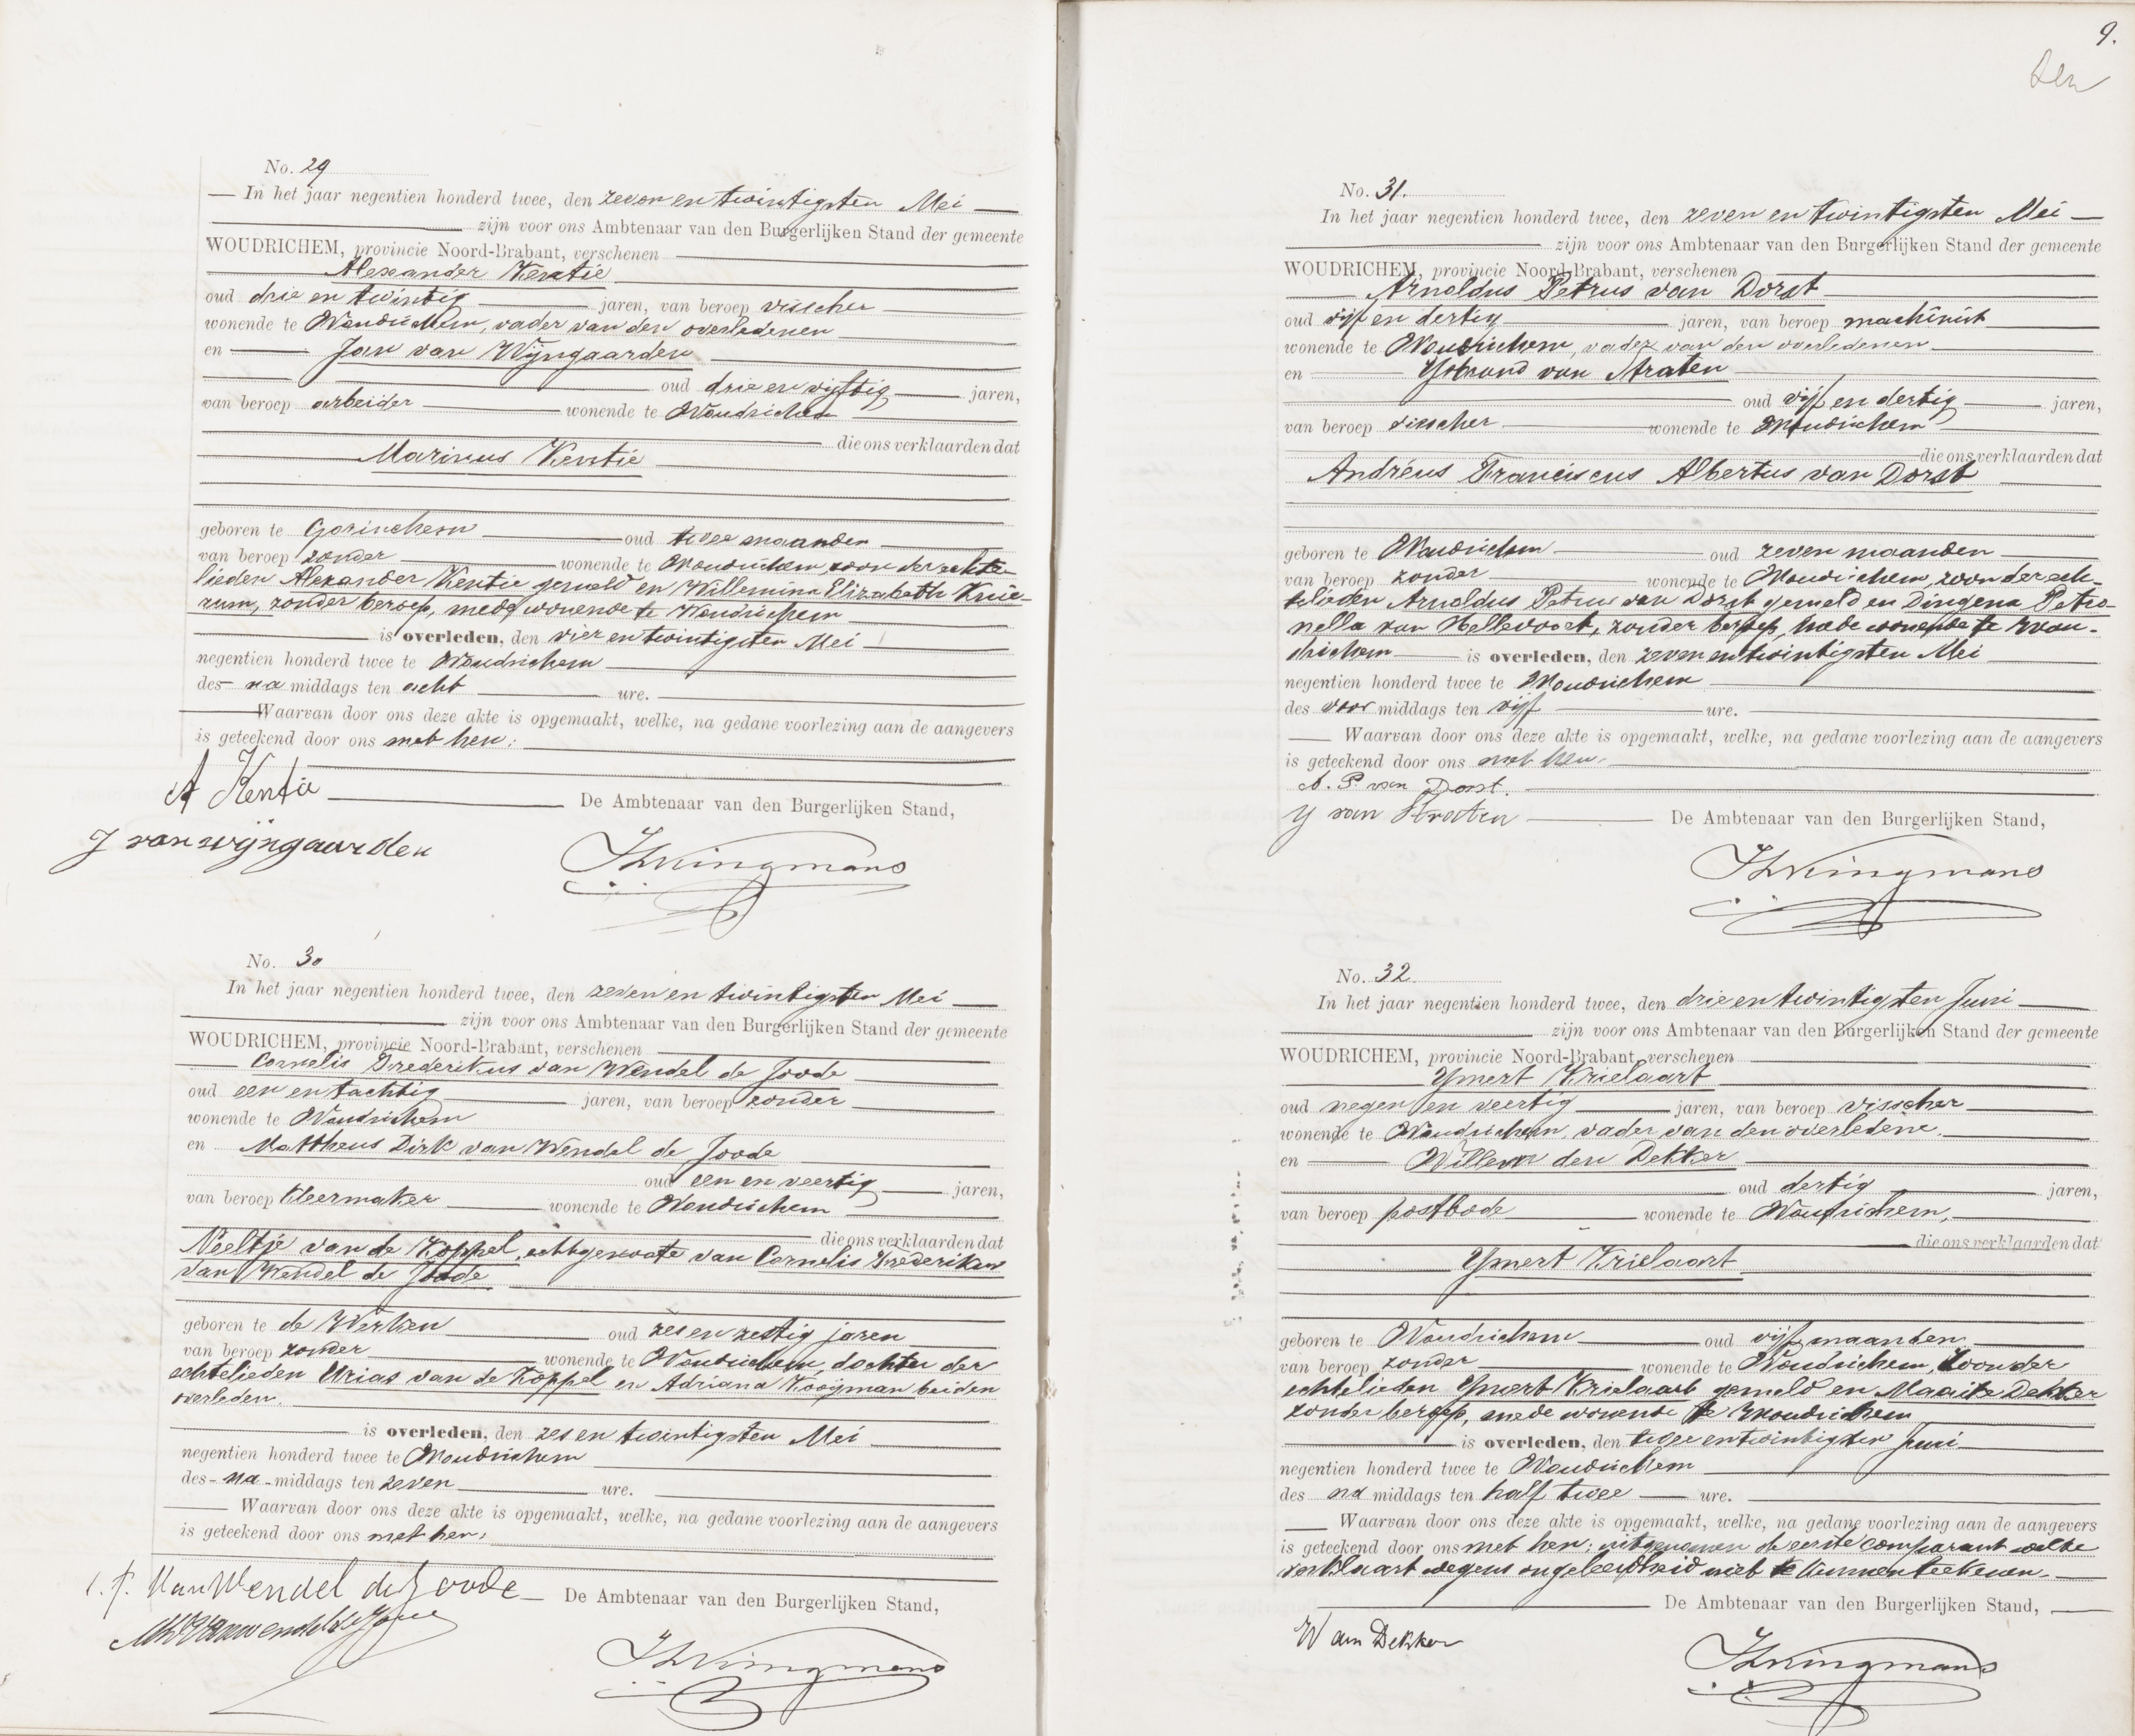 No. 29
In het jaar negentien honderd twee, den zeven en twintigsten Mei
zijn voor ons Ambtenaar van den Burgerlijken Stand der gemeente
WOUDRICHEM, provincie Noord-Brabant, verschenen
Alexander Kentie
oud drie en twintig jaren, van beroep visscher
wonende te Woudrichem, vader van den overledenen
en Jan van Wijngaarden
oud drie en vijftig jaren,
van beroep arbeider wonende te Woudrichem
die ons verklaarden dat
Marinus Kentie
geboren te Gorinchem oud twee maanden
van beroep zonder wonende te Woudrichem, zoon der echte-
lieden Alexander Kentie gemeld en Willemina Elizabeth
zonder beroep, mede wonende te Woudrichem
is overleden, den vier en twintigsten Mei
negentien honderd twee te Woudrichem
des na middags ten acht ure.
Waarvan door ons deze akte is opgemaakt, welke, na gedane voorlezing aan de aangevers
is geteekend door ons met hen:
A Kentie
De Ambtenaar van den Burgerlijken Stand,
J van wijngaarden
No. 30
In het jaar negentien honderd twee, den zeven en twintigsten Mei
zijn voor ons Ambtenaar van den Burgerlijken Stand der gemeente
WOUDRICHEM, provincie Noord-Brabant, verschenen
Cornelis Frederikus van Wendel de Joode
oud een en tachtig jaren, van beroep zonder
wonende te Woudrichem
en Mattheus Dirk van Wendel de Joode
oud een en veertig jaren,
van beroep kleermaker wonende te Woudrichem
die ons verklaarden dat
Neeltje van de Koppel, echtgenoote van Cornelis Frederikus
van Wendel de Joode
geboren te de Werken oud zes en zestig jaren
van beroep zonder wonende te Woudrichem, dochter der
echtelieden Urias van de Koppel en Adriana Kooijman beiden
overleden.
is overleden, den zes en twintigsten Mei
negentien honderd twee te Woudrichem
des na middags ten zeven ure.
Waarvan door ons deze akte is opgemaakt, welke, na gedane voorlezing aan de aangevers
is geteekend door ons met hen:
Van Wendel de Joode
De Ambtenaar van den Burgerlijken Stand,
9.
No. 31.
In het jaar negentien honderd twee, den zeven en twintigsten Mei
zijn voor ons Ambtenaar van den Burgerlijken Stand der gemeente
WOUDRICHEM, provincie Noord-Brabant, verschenen
Arnoldus Petrus van Dorst
oud vijf en dertig jaren, van beroep machinist
wonende te Woudrichem, vader van den overledenen
en IJsbrand van Straten
oud vijf en dertig jaren,
van beroep visscher wonende te Woudrichem
die ons verklaarden dat
Andréus Franciscus Albertus van Dorst
geboren te Woudrichem oud zeven maanden
van beroep zonder wonende te Woudrichem, zoon der ech-
telieden Arnoldus Petrus van Dorst gemeld en Dingena Petro-
nella van Hellevoort, zonder beroep, mede wonende te Wou-
drichem is overleden, den zeven en twintigsten Mei
negentien honderd twee te Woudrichem
des voor middags ten vijf ure.
Waarvan door ons deze akte is opgemaakt, welke, na gedane voorlezing aan de aangevers
is geteekend door ons met hen.
A. P. van Dorst.
Y van Straten
De Ambtenaar van den Burgerlijken Stand,
No. 32
In het jaar negentien honderd twee, den drie en twintigsten Juni
zijn voor ons Ambtenaar van den Burgerlijken Stand der gemeente
WOUDRICHEM, provincie Noord-Brabant, verschenen
Ymert Krielaart
oud negen en veertig jaren, van beroep visscher
wonende te Woudrichem, vader van den overledene.
en Willem den Dekker
oud dertig jaren,
van beroep postbode wonende te Woudrichem,
die ons verklaarden dat
Ymert Krielaart
geboren te Woudrichem oud vijf maanden
van beroep zonder wonende te Woudrichem, zoon der
echtelieden Ymert Krielaart gemeld en Maaike Dekker
zonder beroep, mede wonende te Woudrichem
is overleden, den twee en twintigsten Juni
negentien honderd twee te Woudrichem
des na middags ten half twee ure.
Waarvan door ons deze akte is opgemaakt, welke, na gedane voorlezing aan de aangevers
is geteekend door ons met hen; uitgenomen de eerste comparant welke
verklaart wegens ongeleerdheid niet te kunnen teekenen.
De Ambtenaar van den Burgerlijken Stand,
W den Dekker